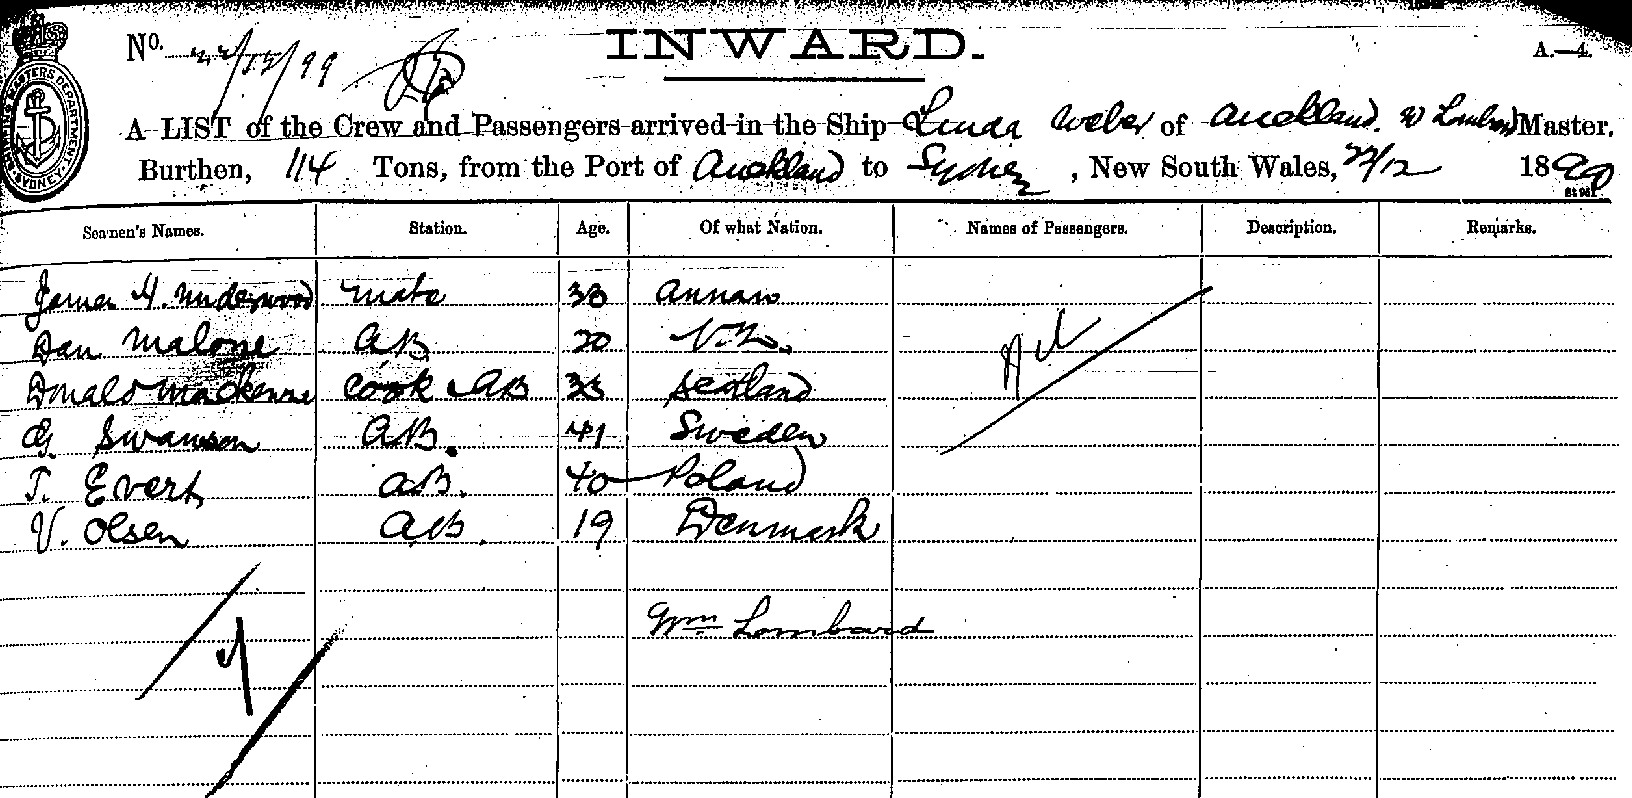 INWARD.
No. 22/12/99
A.—4.
A LIST of the Crew and Passengers arrived in the Ship Linda Weber of Auckland. W Lombard Master,
Burthen, 114 Tons, from the Port of Auckland to Sydney, New South Wales, 22/12 1899
Seamen's Names. Station. Age. Of what Nation. Names of Passengers. Description. Remarks.
James H. Underwood mate 38
Dan Malone AB 20 N.Z.
Donald Mackenzie Cook & AB Scotland
G. Swanson AB. 41 Sweden
T. Evert AB. 40 Poland
V. Olsen AB. 19 Denmark
Nil
Wm Lombard